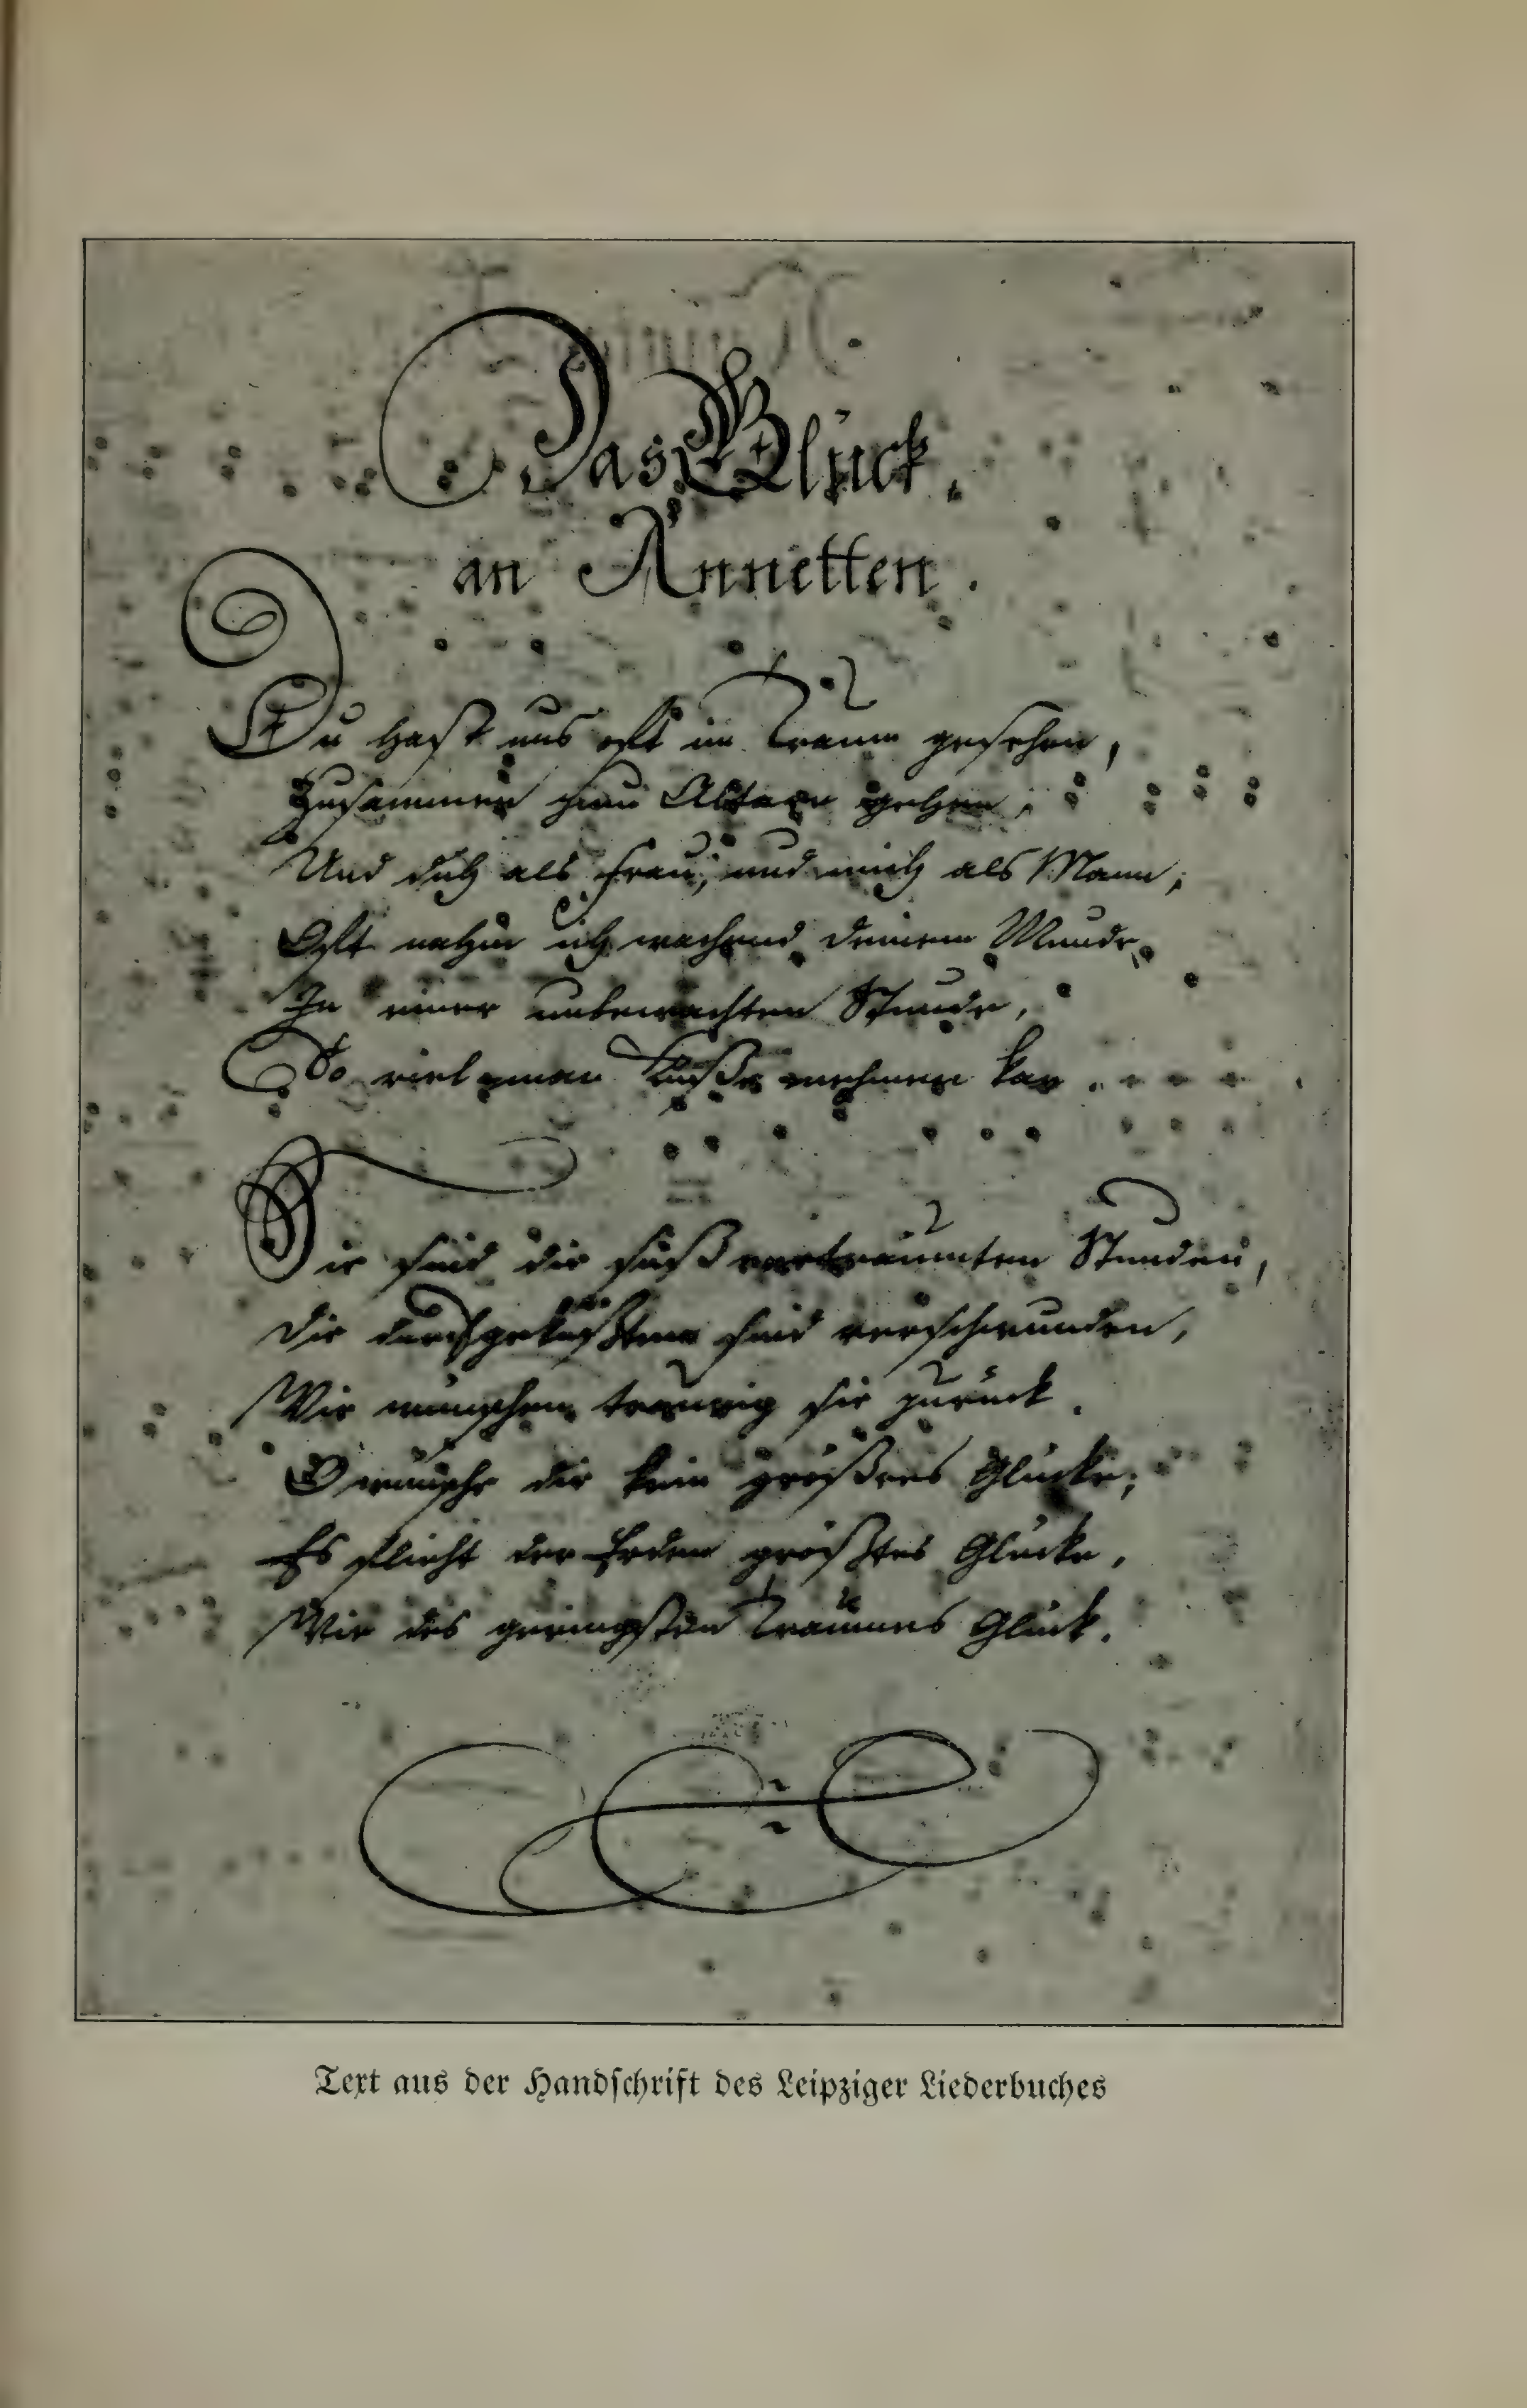 Das Glück,
an Annetten.
Du hast uns oft im Traum gesehen,
Zusammen zum Altare gehen,
Und dich als Frau, und mich als Mann;
Oft nahm ich wachend deinem Munde,
In einer unbewachten Stunde,
So viel man Küße nehmen kan.
Die sind die süß verträumten Stunden,
Die durchgeküßten sind verschwunden,
Wir wünschen traurig sie zurück.
O wünsche dir kein größres Glücke;
Es flieht der Erden größtes Glücke,
Wie des geringsten Traumes Glück.
Text aus der Handschrift des Leipziger Liederbuches